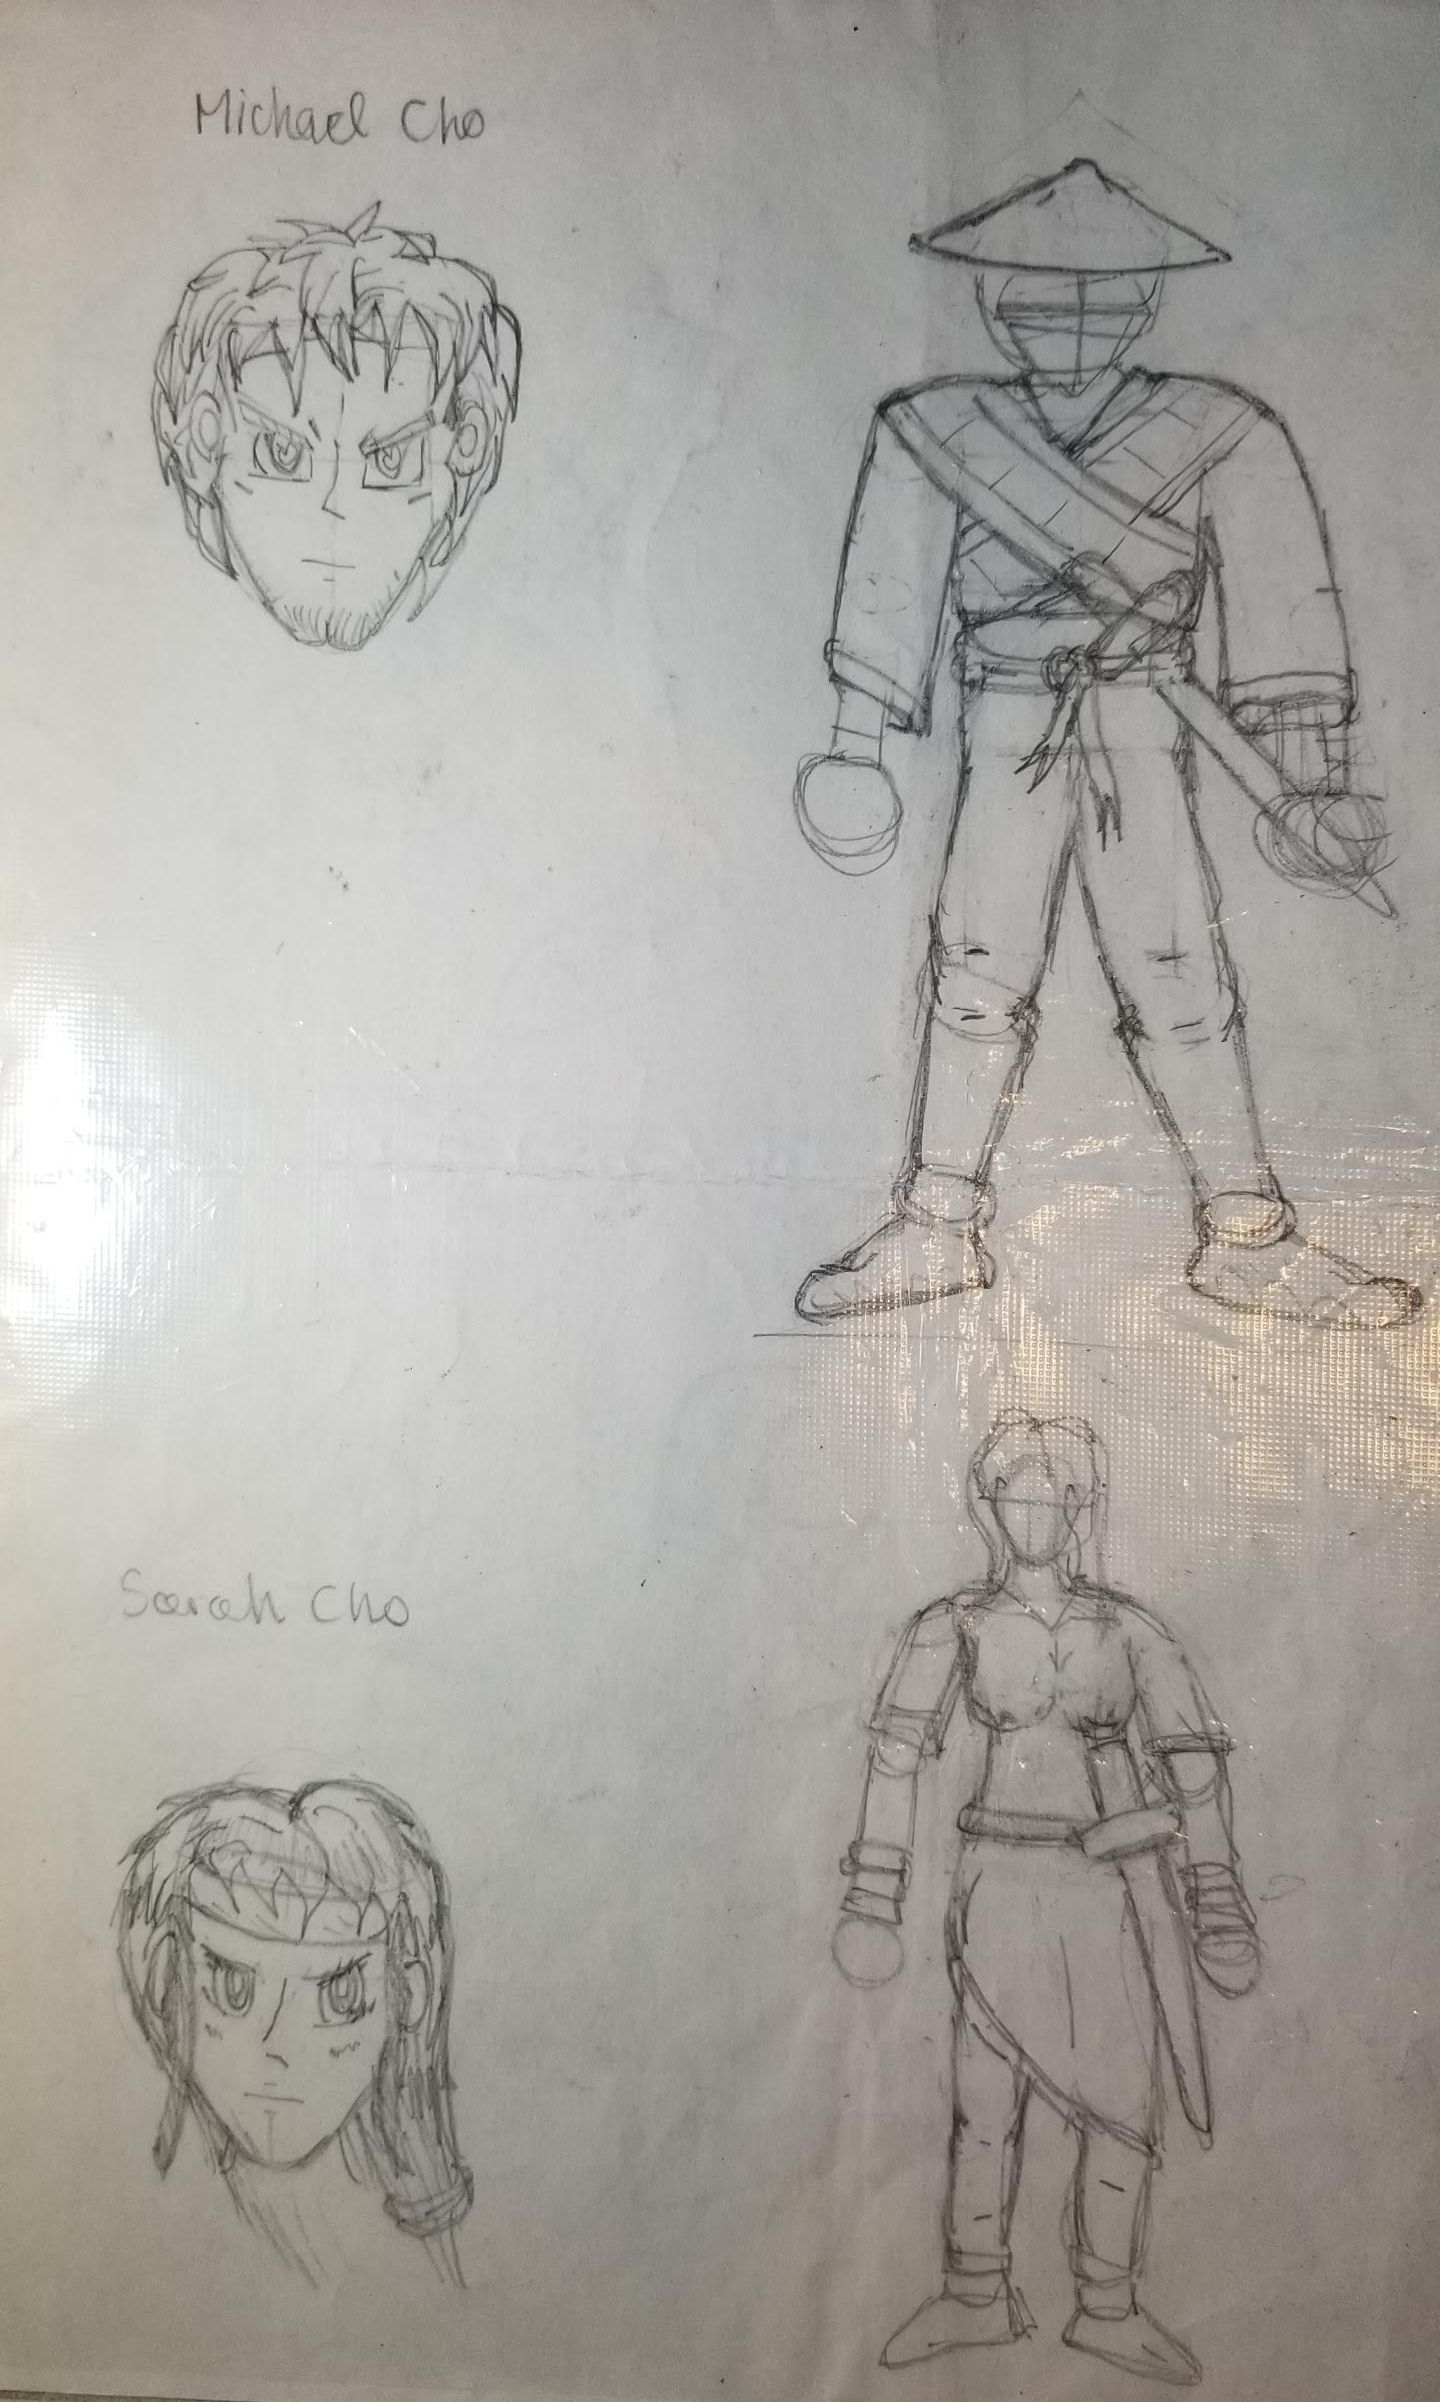 Michael Cho
Sarah Cho